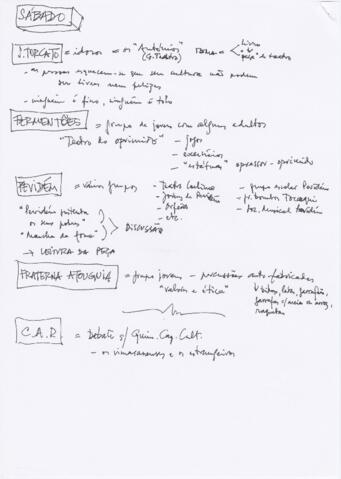 SÁBADO
S. TORCATO = idosos = os "Antónios" (G. Teatro) livro
peça de teatro
- as pessoas esquecem-se que sem cultura não podem
ser livres nem felizes
- ninguém é fino, ninguém é tolo
FERMENTÕES = grupo de jovens com alguns adultos
"Teatro do oprimido" - jogos
- exercícios
- "estátuas" opressor - oprimido
PEVIDÉM = vários grupos - Teatro - grupo escolar Pevidém
- jovens de Pevidém - gr. bombos
- Orfeão - soc. musical Pevidém
- etc.
"Pevidém
os seus pobres"
"Mancha de fome" DISCUSSÃO
→ LEITURA DA PEÇA
FRATERNA ATOUGUIA = grupo jovem - percussões auto fabricadas
"valores e ética" bidos, lata, garrafões,
garrafas c/ areia e arroz,
raquetas
C.A.R. = Debate s/ Guim. Cap. Cult.
- os vimaranenses e os estrangeiros